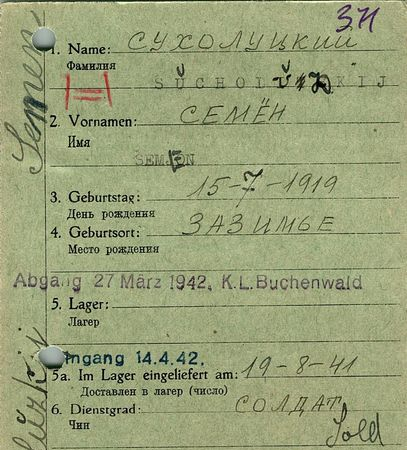 371
1. Name: СУХОЛУЦКИЙ
Фамилия
2. Vornamen: СЕМЁН
Имя
SEMJON
3. Geburtstag: 15-7-1919
День рождения
4. Geburtsort: ЗАЗИМЬЕ
Место рождения
Abgang 27 März 1942, K.L.Buchenwald
5. Lager:
Лагер
Eingang 14.4.42.
5a. Im Lager eingeliefert am: 19-8-41
Доставлен в лагер (число)
6. Dienstgrad: СОЛДАТ
Чин
Sold
Semen